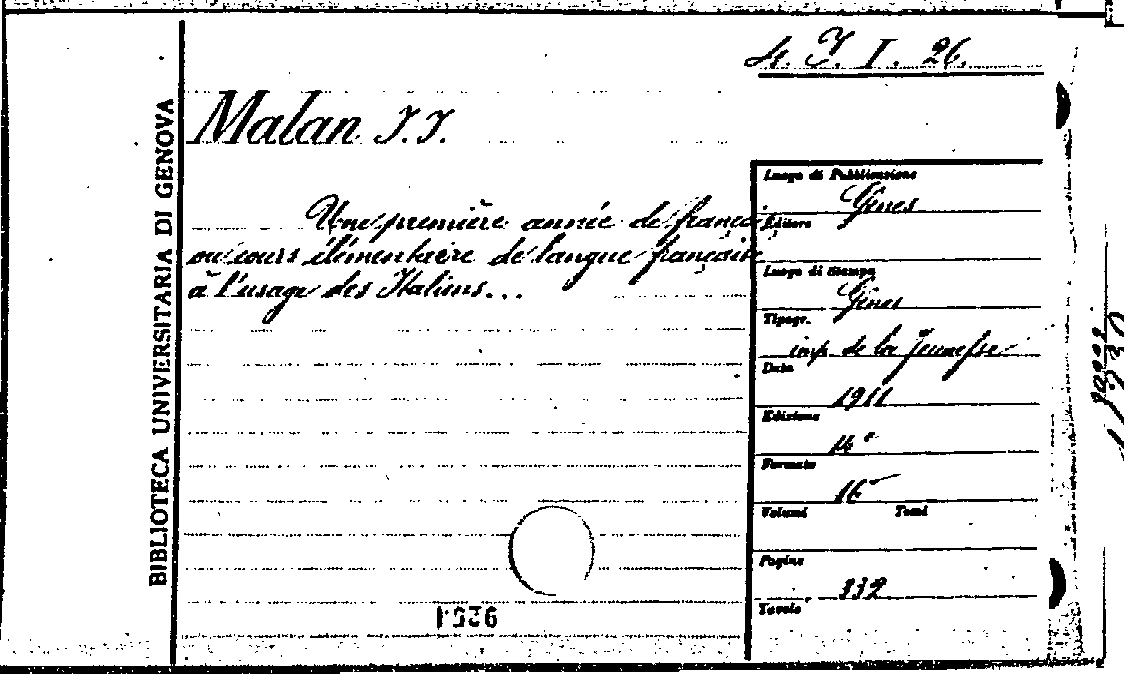 4. I. I. 26.
BIBLIOTECA UNIVERSITARIA DI GENOVA
Malan J. J.
Une première année de français,
ou cours élémentaire de langue française
à l'usage des Italiens...
Luogo di Pubblicazione
Gênes
Editore
Luogo di Stampa
Gênes
Tipogr.
imp. de la Jeunesse
Data
1911
Edizione
14e
Formato
16°
Volumi Tomi
Pagine
332
Tavole